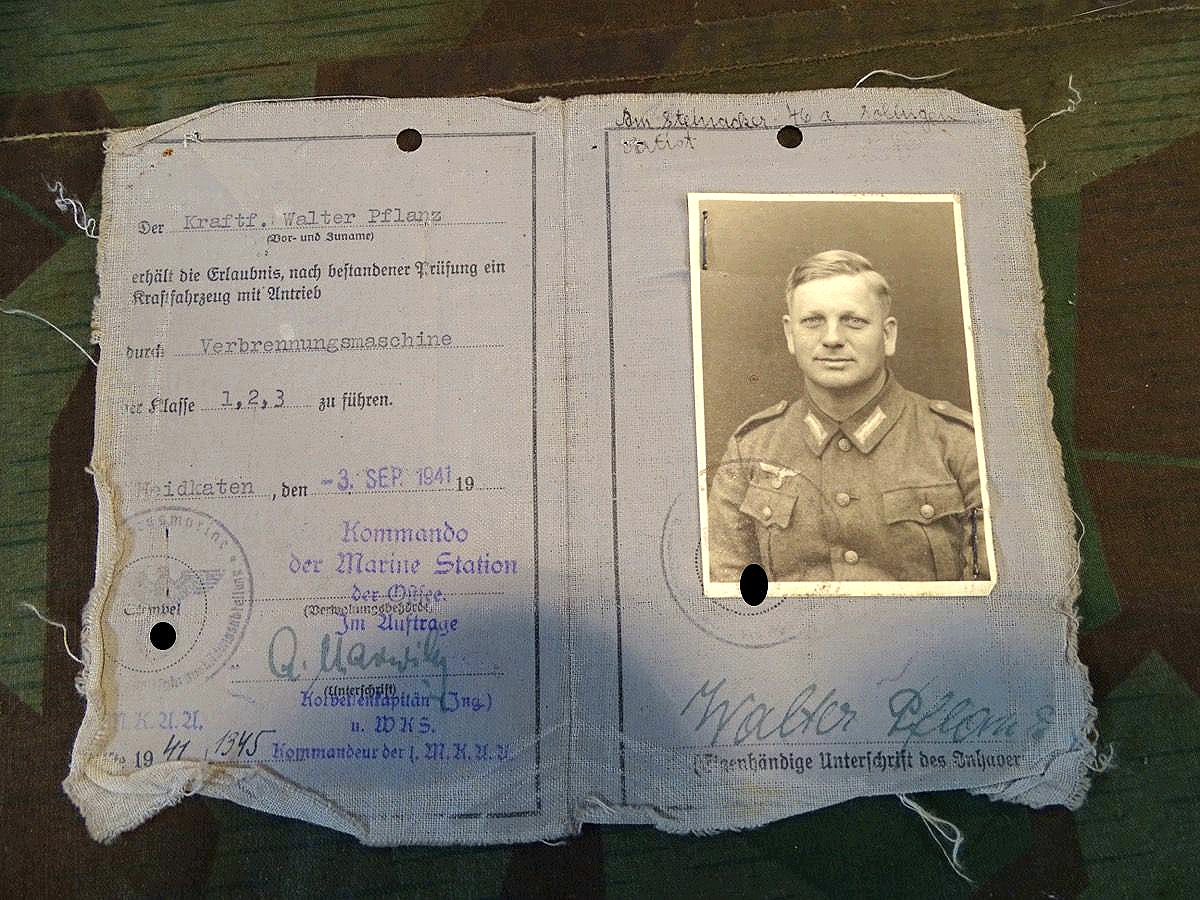 Der Kraftf. Walter Pflanz
(Vor- und Zuname)
erhält die Erlaubnis, nach bestandener Prüfung ein
Kraftfahrzeug mit Antrieb
durch Verbrennungsmaschine
der Klasse 1,2,3 zu führen.
Heidkaten, den -3. SEP. 1941 19
Kommando
der Marine Station
der Ostsee
(Verwaltungsbehörde)
Im Auftrage
Stempel
(Unterschrift)
Korvettenkapitän (Ing.)
M.K.A.A. u. WKS.
19 41, 1345 Kommandeur der 1. M.K.A.A.
Am Steinacker 46 a
Walter Pflanz
(Eigenhändige Unterschrift des Inhaber